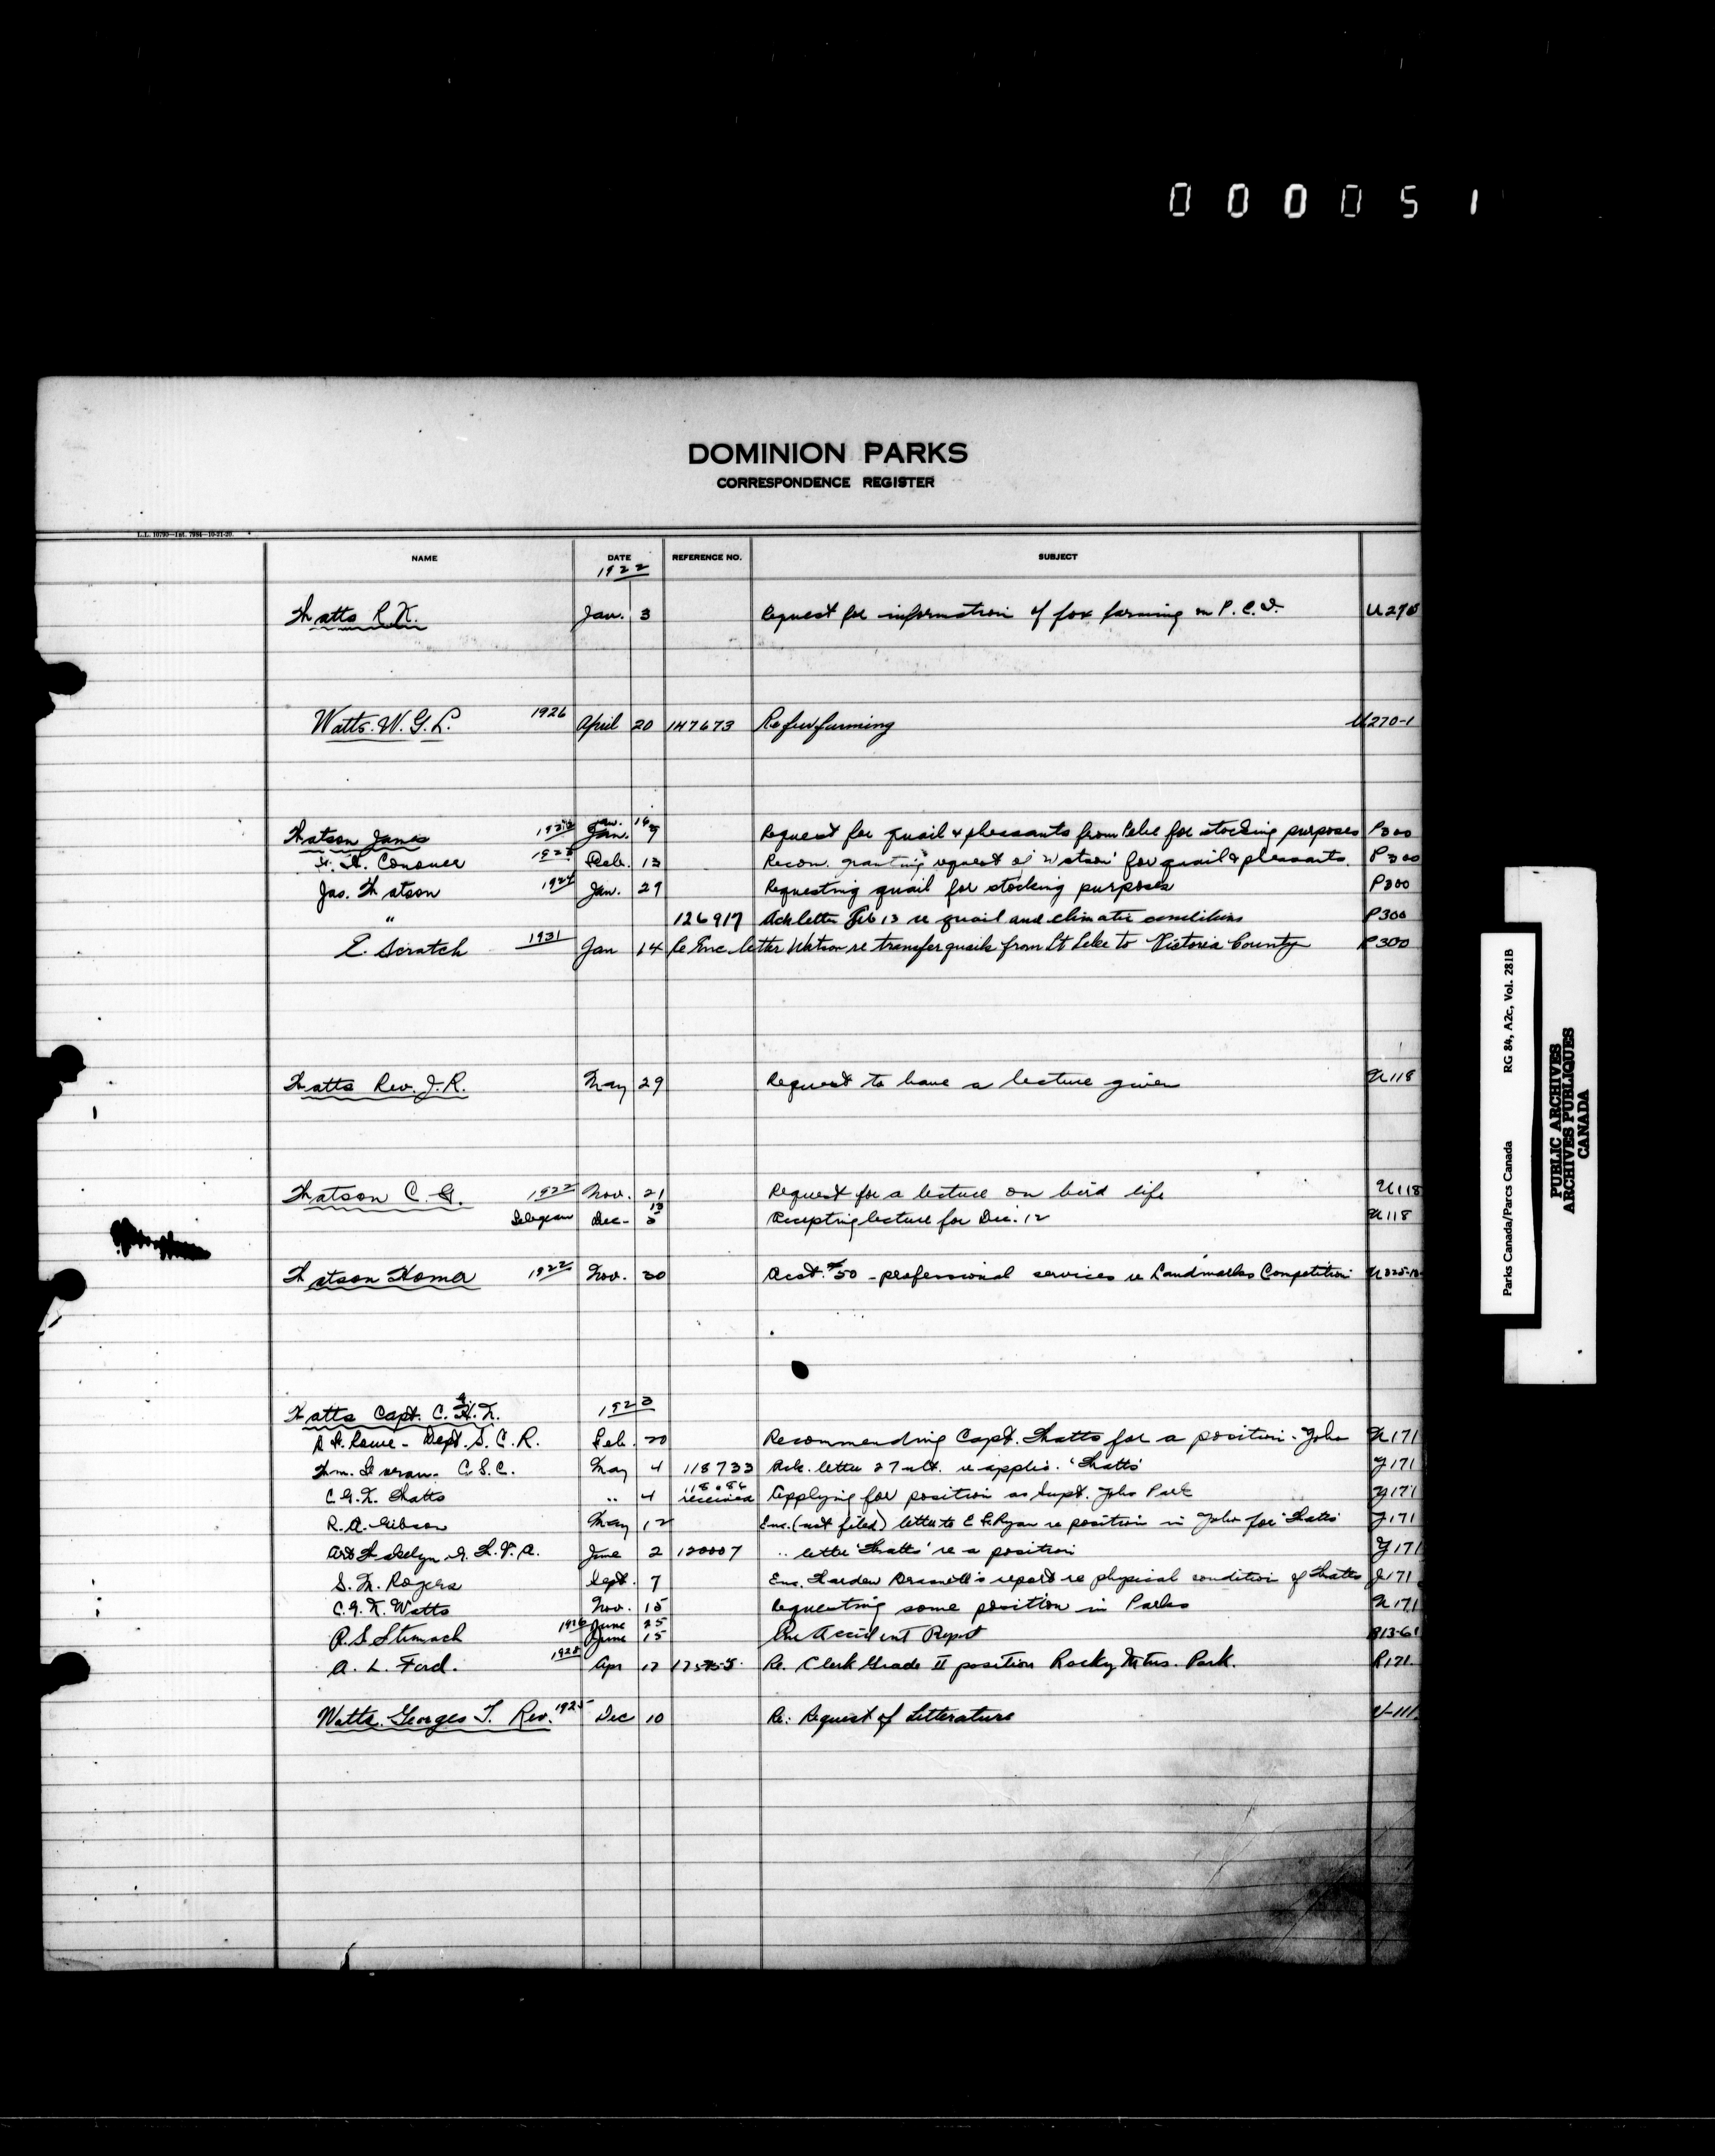 000051
DOMINION PARKS
CORRESPONDENCE REGISTER
L.L. 10790—Int. 7984—10-21-20.
NAME DATE REFERENCE NO. SUBJECT
1922
Watts R.K. Jan. 3 Request for information of fox farming on P.E.I. U270
Watts. W.G.L. 1926 April 20 147673 Re fur farming U270-1
Jan. 16
Watson James 1923 Jan. 9 Request for quail & pheasants from Pelee for stocking purposes P300
F. H. Conover 1923 Feb. 13 Recom. granting request of 'Watson' for quail & pheasants. P300
Jas. Watson 1924 Jan. 29 Requesting quail for stocking purposes P300
" 126917 Ack letter Feb 13 re quail and climatic conditions P300
E. Scratch 1931 Jan 14 Re Enc letter Watson re transfer quails from Pt Pelee to Victoria County P300
Watts Rev. J.R. May 29 Request to have a lecture given U118
Watson C.G. 1922 Nov. 21 Request for a lecture on bird life U118
Telegram Dec. 5 13 Accepting lecture for Dec. 12 U118
Watson Homer 1922 Nov. 30 Acct. $50 - professional services re Landmarks Competition U325-10
Watts Capt. C.G.K. 1923
Rowe - Dept. S.C.R. Feb. 20 Recommending Capt. Watts for a position - Yoho U171
Wm. Foran. C.S.C. May 4 118733 Ack. letter 27 ult. re applic. 'Watts' Y171
C.G.K. Watts .. 4 received Applying for position as Supt. Yoho Park Y171
R.A. Gibson May 12 Enc. (not filed) letter to C Ryan re position in Yoho for 'Watts' Y171
G.W.V.A. June 2 120007 .. letter 'Watts' re a position Y171
S. M. Rogers Sept. 7 Enc. Warden report re physical condition of Watts J171
C.G.K. Watts Nov. 15 Requesting some position in Parks U171
R.S. Stronach 1926 June 25
June 15 Accident Report R13-61
A. L. Ford. 1928 Apr 17 Re. Clerk Grade II position Rocky Mtns. Park. R171
Watts. Georges T. Rev. 1925 Dec 10 Re: Request of Litterature U-111
Parks Canada/Parcs Canada RG 84, A2c, Vol. 281B
PUBLIC ARCHIVES
ARCHIVES PUBLIQUES
CANADA